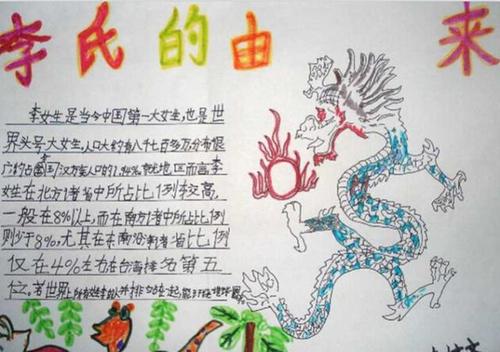 李氏的由来
李姓是当今中国第一大姓,也是世
界头号大姓,人口大约有八千七百多万分布很
广约占全国汉族人口的7.94%就地区而言李
姓在北方诸省中所占比例较高,
一般在8%以上,而在南方诸中所占比例
则少于8%,尤其在东南沿海诸省比例
仅在4%左右在台湾排名第五
位,若世界上所有姓李的人并排